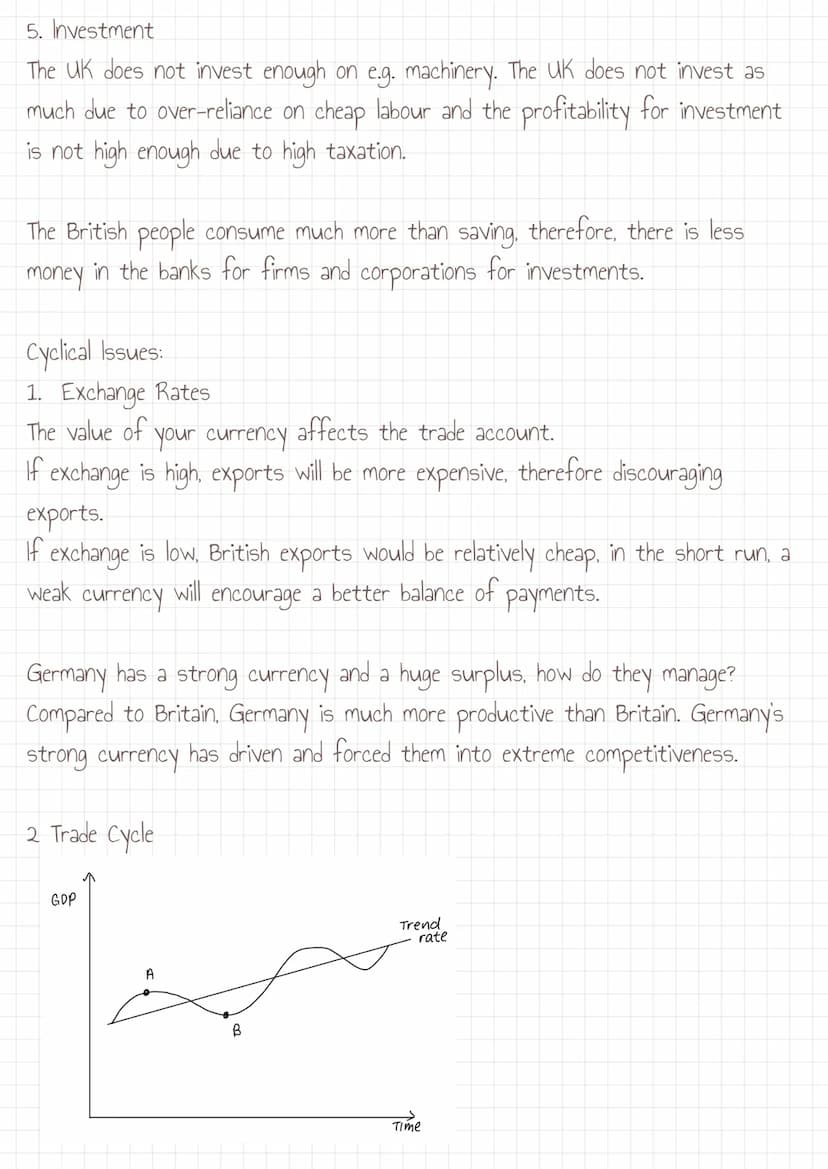 5. Investment
The UK does not invest enough on e.g. machinery. The UK does not invest as
much due to over-reliance on cheap labour and the profitability for investment
is not high enough due to high taxation.
The British people consume much more than saving, therefore, there is less
money in the banks for firms and corporations for investments.
Cyclical Issues:
1. Exchange Rates
The value of your currency affects the trade account.
If exchange is high, exports will be more expensive, therefore discouraging
exports.
If exchange is low, British exports would be relatively cheap, in the short run, a
weak currency will encourage a better balance of payments.
Germany has a strong currency and a huge surplus, how do they manage?
Compared to Britain, Germany is much more productive than Britain. Germany's
strong currency has driven and forced them into extreme competitiveness.
2 Trade Cycle
GDP
Trend
rate
A
B
Time